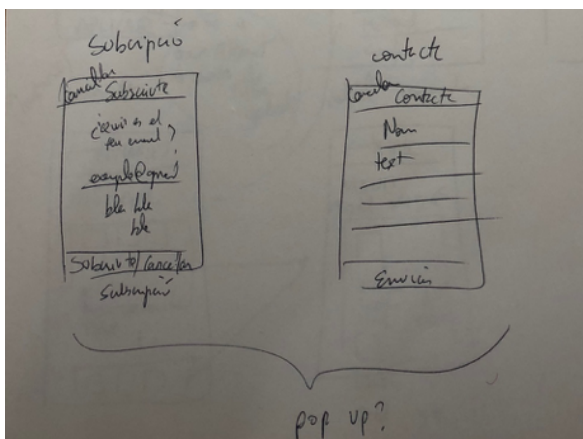 Subscripció
Cancellar
Subscriute
¿Quin es el
teu email?
exemple@gmail
bla bla
bla
Subscriute/Cancellar
Subscripció
contacte
Cancelar
Contacte
Nom
text
Enviar
pop up?